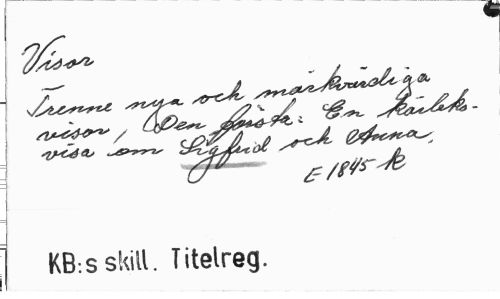 Visor
Trenne nya och märkvärdiga
visor, Den första: En kärleks-
visa om Sigfrid och Anna.
E 1845 k
KB:s skill. Titelreg.